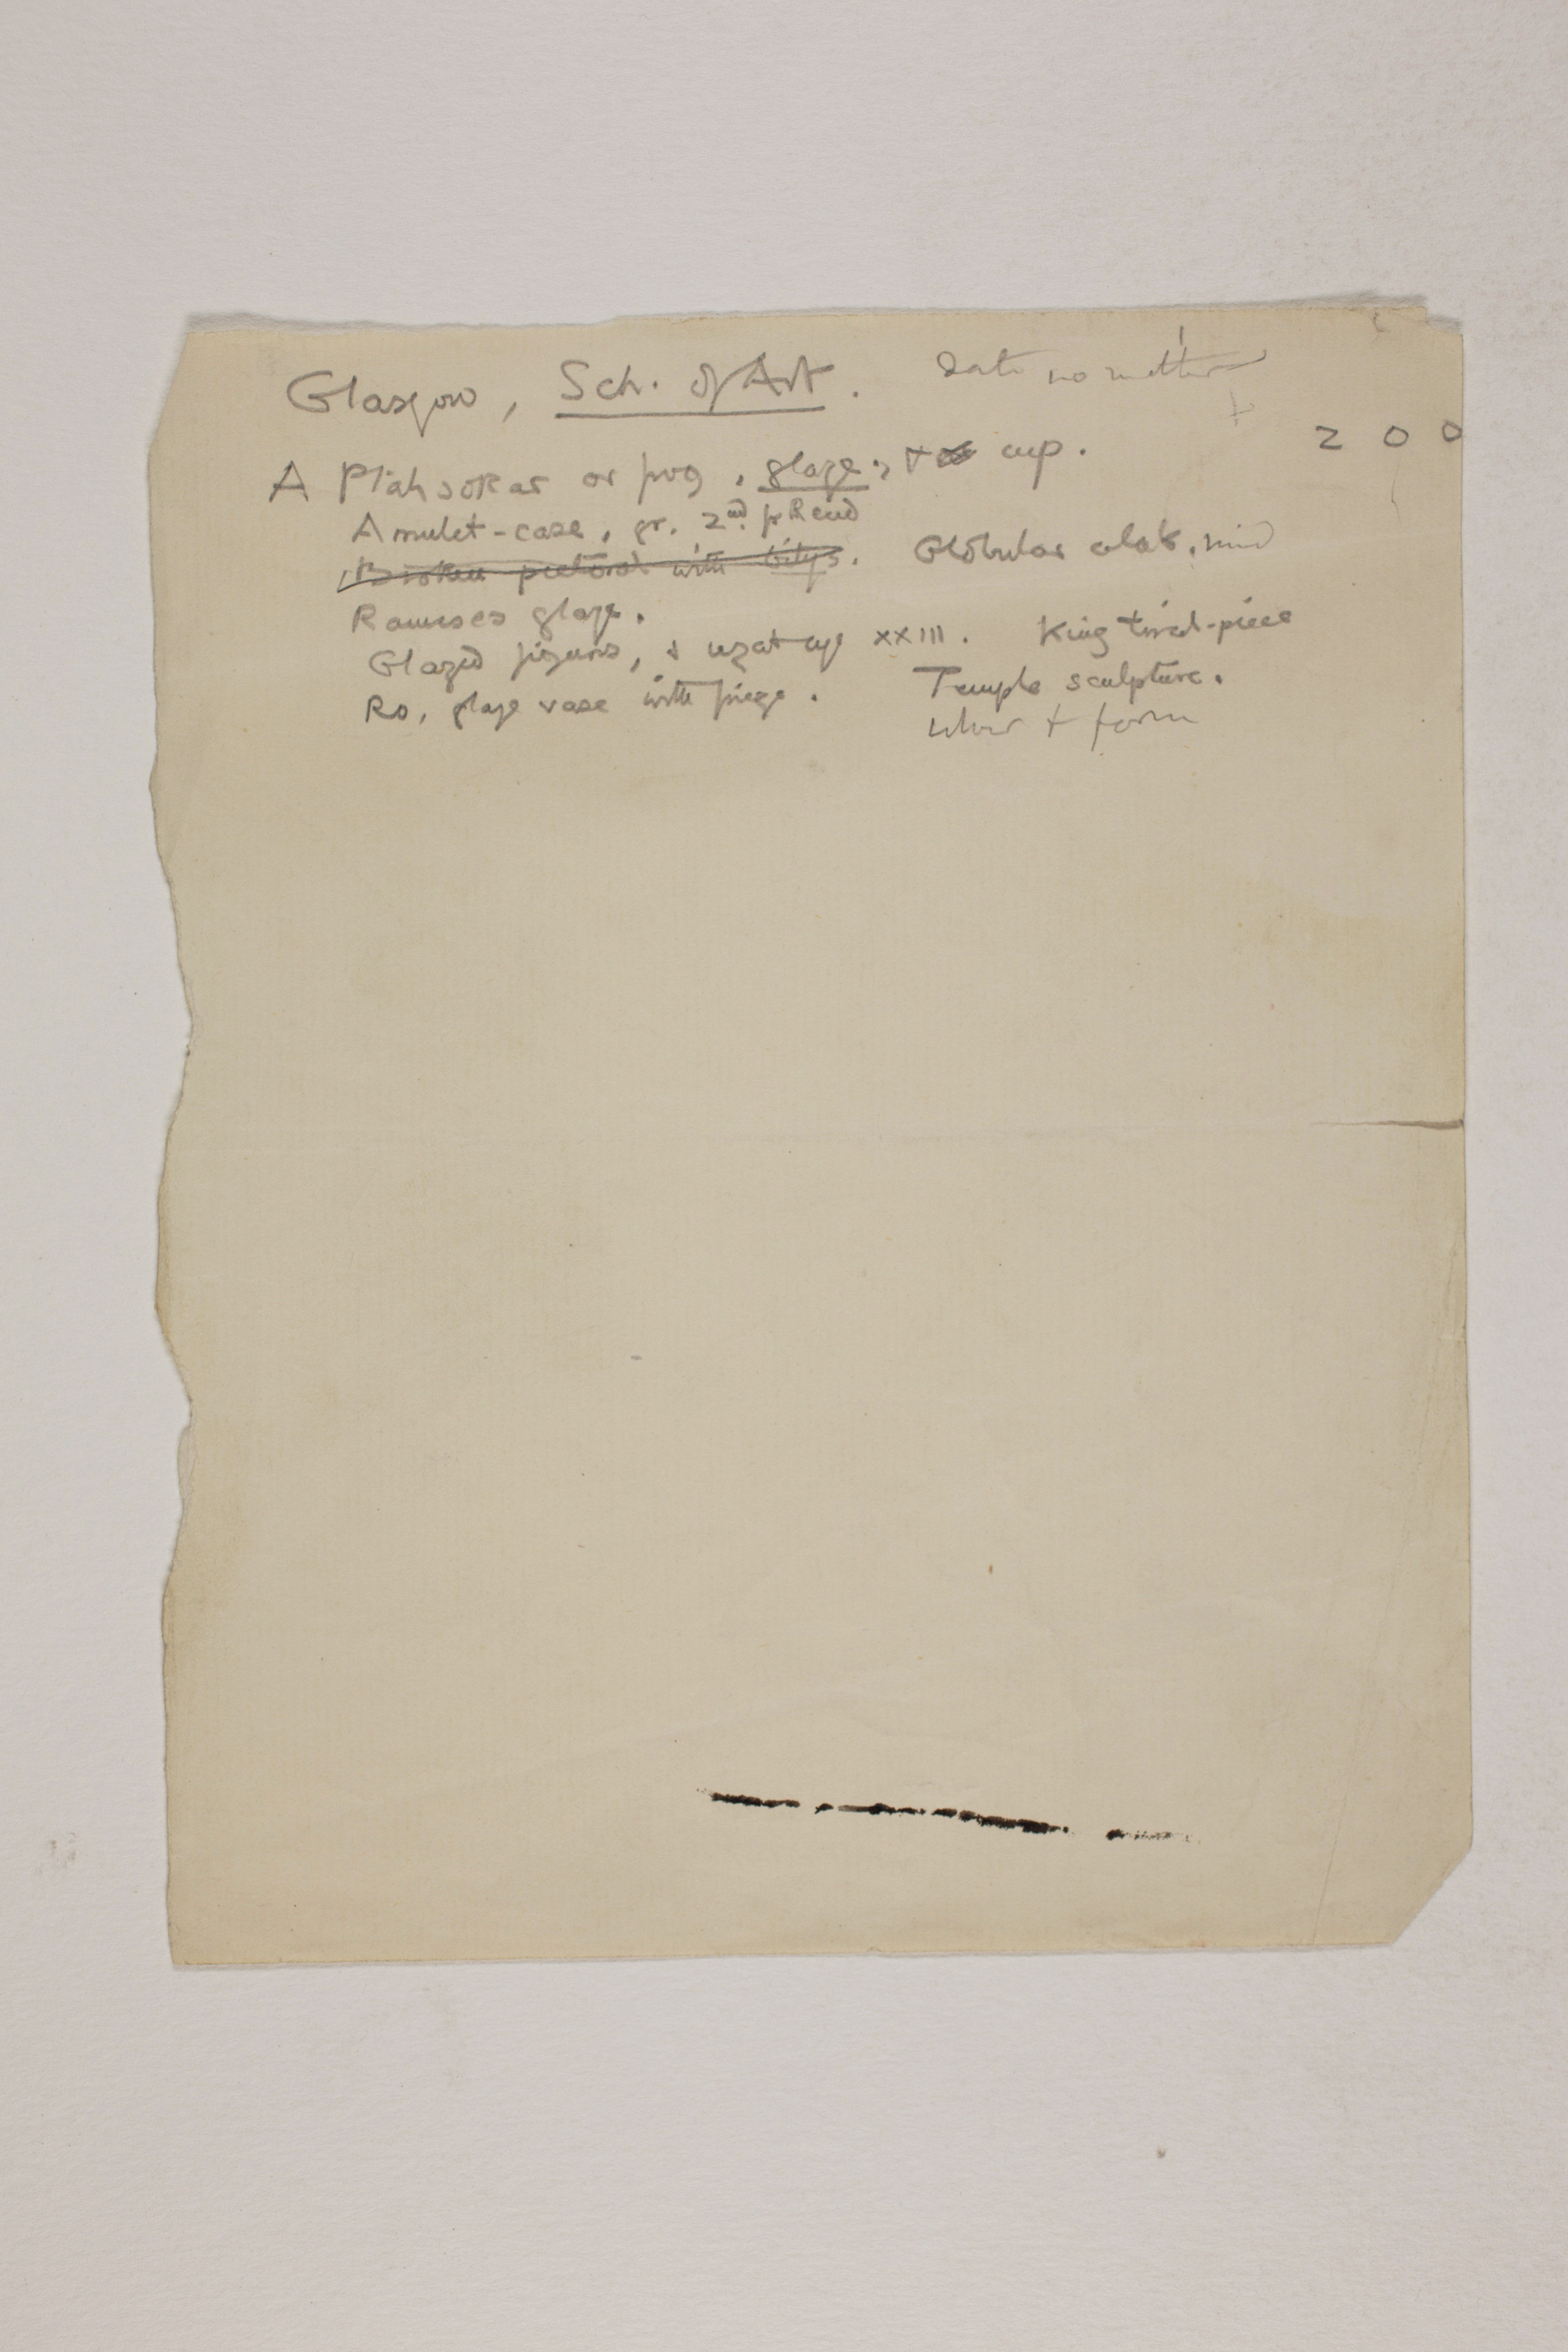 Glasgow, Sch. of Art. Date no matter
2 0 0
A Ptahsokar or frog, glaze, + cup.
Amulet-case, gr. 2nd fr Reid
Broken pectoral with bitys. Globular alab.
Rameses glaze.
Glazed figures, & uzat eye XXIII. King trial-piece
Ro, glaze vase with frieze. Temple sculpture.
colour + form